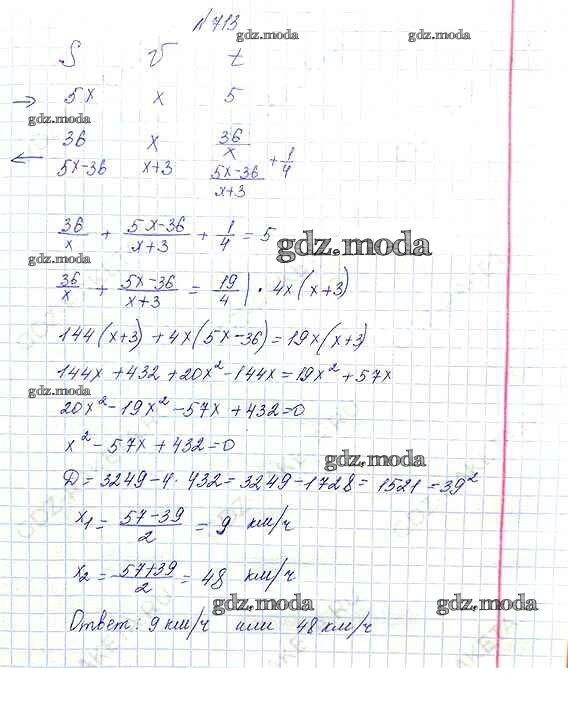 № 713
gdz.moda gdz.moda
S V t
→ 5x x 5
gdz.moda
36 x 36/x
← 5x-36 x+3 (5x-36)/(x+3) + 1/4
36/x + (5x-36)/(x+3) + 1/4 = 5
gdz.moda
gdz.moda
36/x + (5x-36)/(x+3) = 19/4 | · 4x(x+3)
144(x+3) + 4x(5x-36) = 19x(x+3)
144x + 432 + 20x² - 144x = 19x² + 57x
gdz.moda
20x² - 19x² - 57x + 432 = 0
x² - 57x + 432 = 0
gdz.moda
D = 3249 - 4 · 432 = 3249 - 1728 = 1521 = 39²
x₁ = (57-39)/2 = 9 км/ч
x₂ = (57+39)/2 = 48 км/ч
gdz.moda gdz.moda
Ответ: 9 км/ч или 48 км/ч
gdz.moda